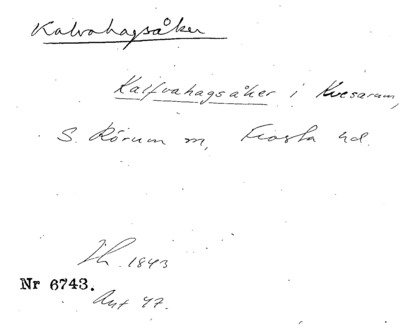 Kalvahagsåker
Kalfvahagsåker i Kvesarum,
S. Rörum sn, Frosta hd.
1843
Nr 6743.
Akt 47.